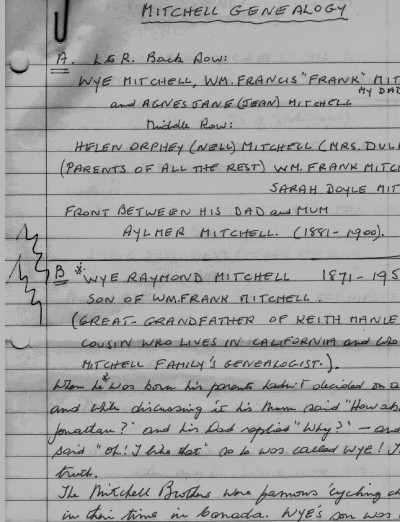 MITCHELL GENEALOGY
A. L to R. Back Row:
WYE MITCHELL, WM. FRANCIS "FRANK" MIT
MY DAD
and AGNES JANE (JEAN) MITCHELL
Middle Row:
HELEN ORPHEY (NELL) MITCHELL (MRS. DUL
(PARENTS OF ALL THE REST) WM. FRANK MITC
SARAH DOYLE MIT
FRONT BETWEEN HIS DAD and MUM
AYLMER MITCHELL. (1881-1900).
B * WYE RAYMOND MITCHELL 1871-195
SON OF WM. FRANK MITCHELL.
(GREAT-GRANDFATHER OF KEITH MANLE
COUSIN WHO LIVES IN CALIFORNIA and WHO
MITCHELL FAMILY'S GENEALOGIST.).
When he* was born his parents hadn't decided on a
and while discussing it his Mum said "How ab
Jonathan?" and his Dad replied "Why?" - and
said "Oh! I like that" so he was called WYE! T
truth.
The Mitchell Brothers were famous 'cycling ch
in their time in Canada. WYE'S son was